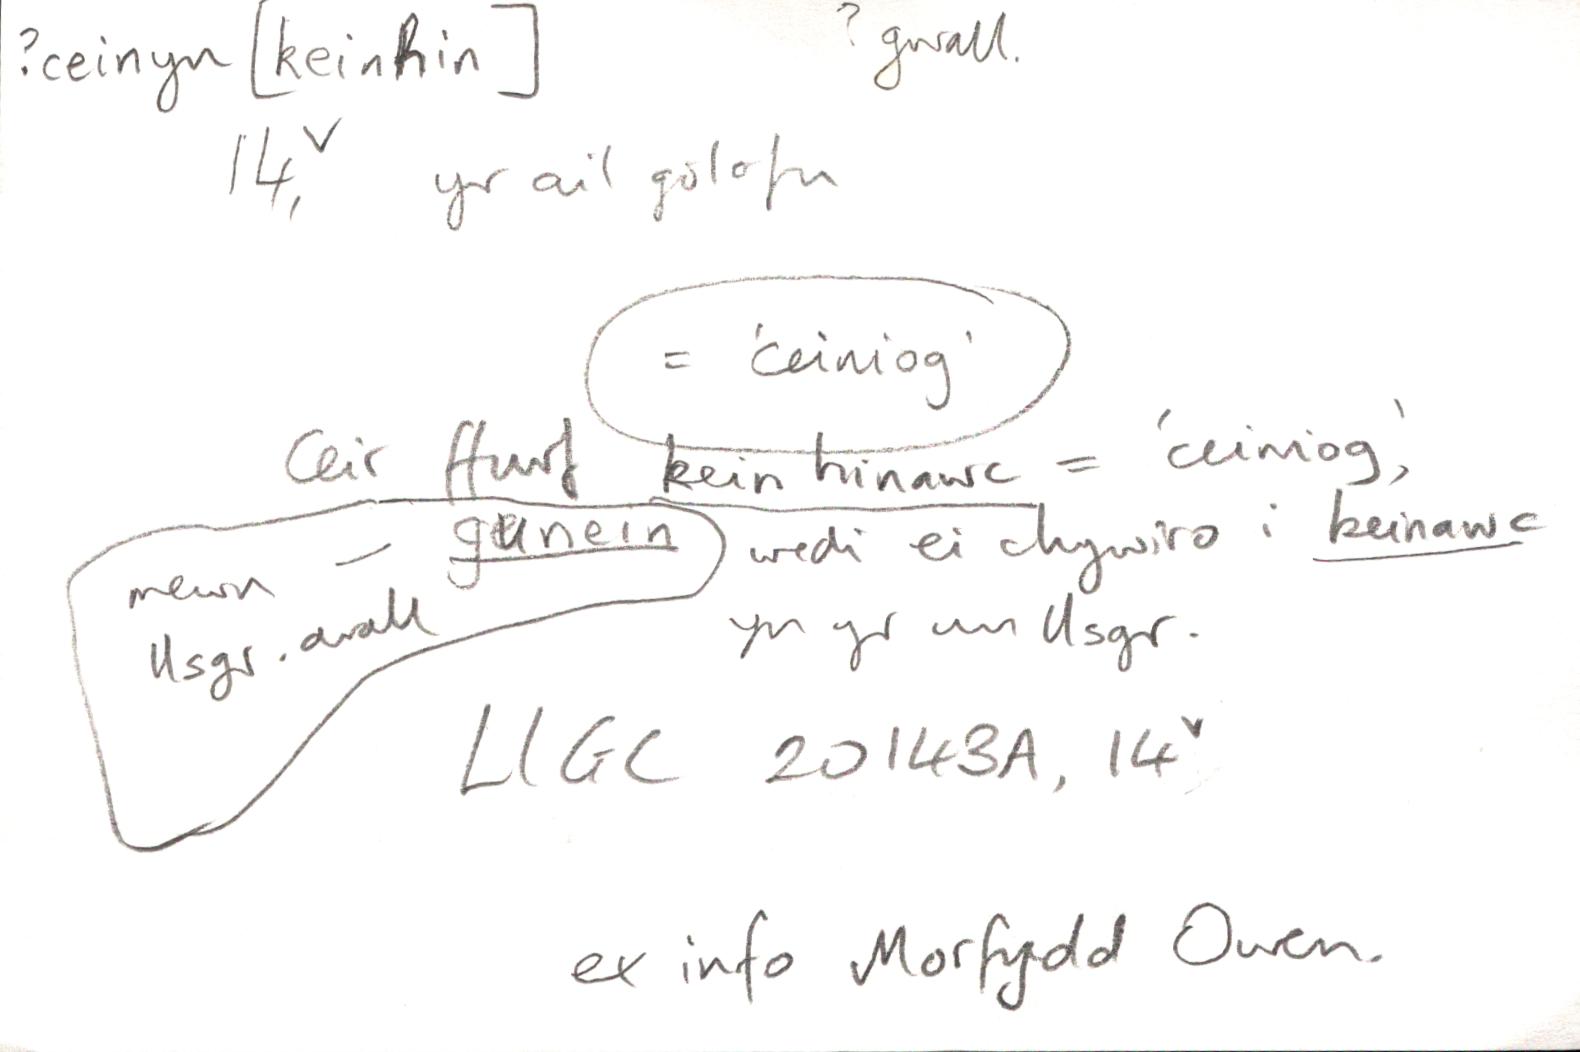 ?ceinyn [keinhin] ? gwall.
14,v yr ail golofn
= 'ceiniog'
Ceir ffurf keinhinawc = 'ceiniog',
mewn — gunein wedi ei chywiro i keinawc
llsgr. arall yn yr un llsgr.
LlGC 20143A, 14v
ex info Morfydd Owen.